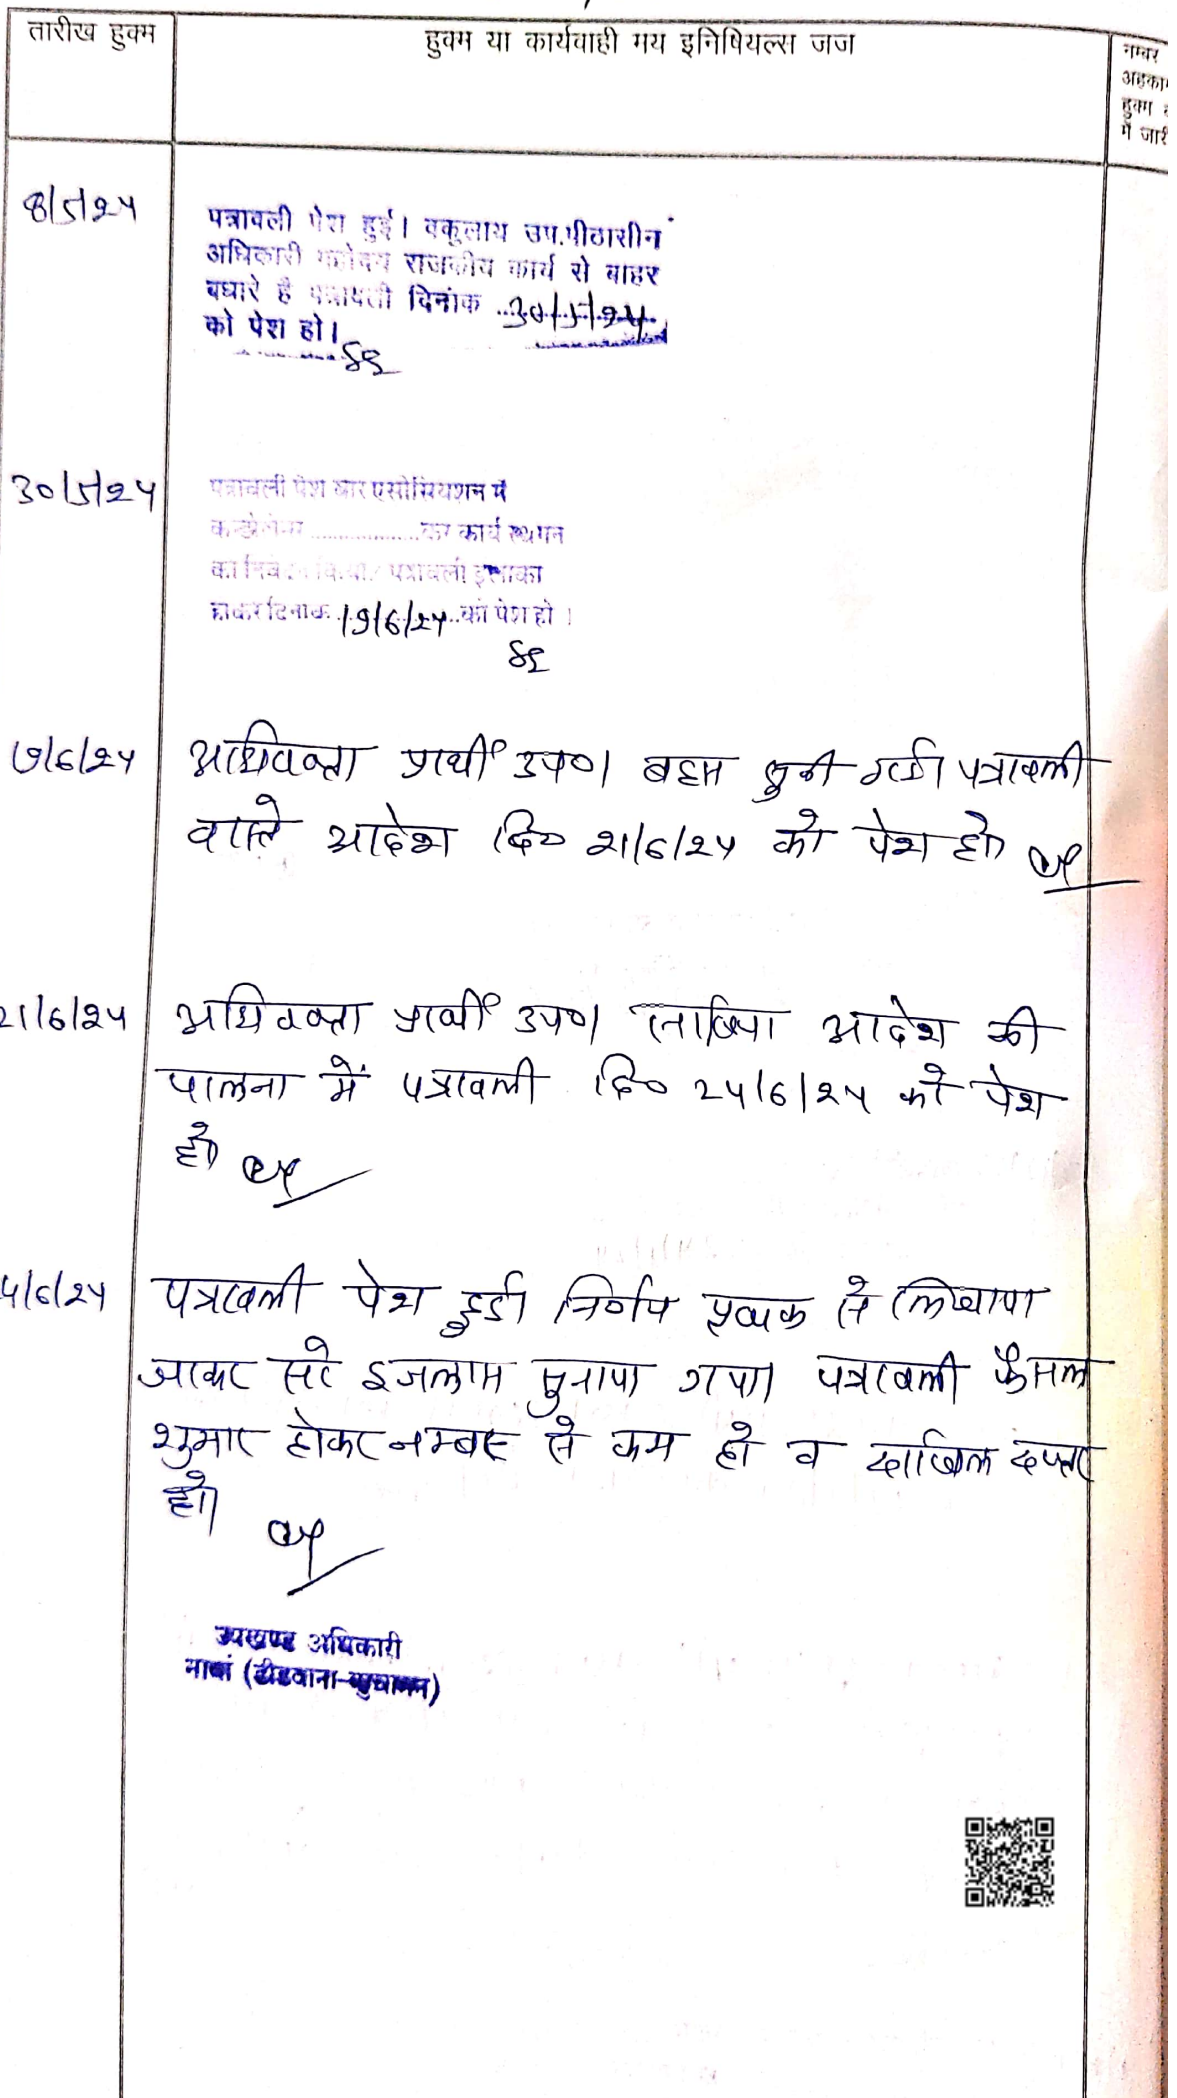 तारीख हुक्म
हुक्म या कार्यवाही मय इनिषियल्स जज
नम्बर
अहकाम
हुक्म
में जारी
8/5/24
पत्रावली पेश हुई। वकुलाय उप.पीठासीन
अधिकारी महोदय राजकीय कार्य से बाहर
पधारे है पत्रावली दिनांक ..30/5/24..
को पेश हो।
30/5/24
पत्रावली पेश बार एसोसियशन में
कर कार्य स्थगन
का निवेदन किया। पत्रावली इलाका
होकर दिनांक 19/6/24 को पेश हो।
19/6/24
अधिवक्ता प्रार्थी उप०। बहस सुनी गई। पत्रावली
वास्ते आदेश दि० 21/6/24 को पेश हो।
21/6/24
अधिवक्ता प्रार्थी उप०। आदेश की
पालना में पत्रावली दि० 24/6/24 को पेश
हो।
4/6/24
पत्रावली पेश हुई। निर्णय पृथक से लिखाया
जाकर सरे इजलास सुनाया गया। पत्रावली फैसल
शुमार होकर नम्बर से कम हो व दाखिल दफ्तर
हो।
उपखण्ड अधिकारी
नावां (डीडवाना-कुचामन)